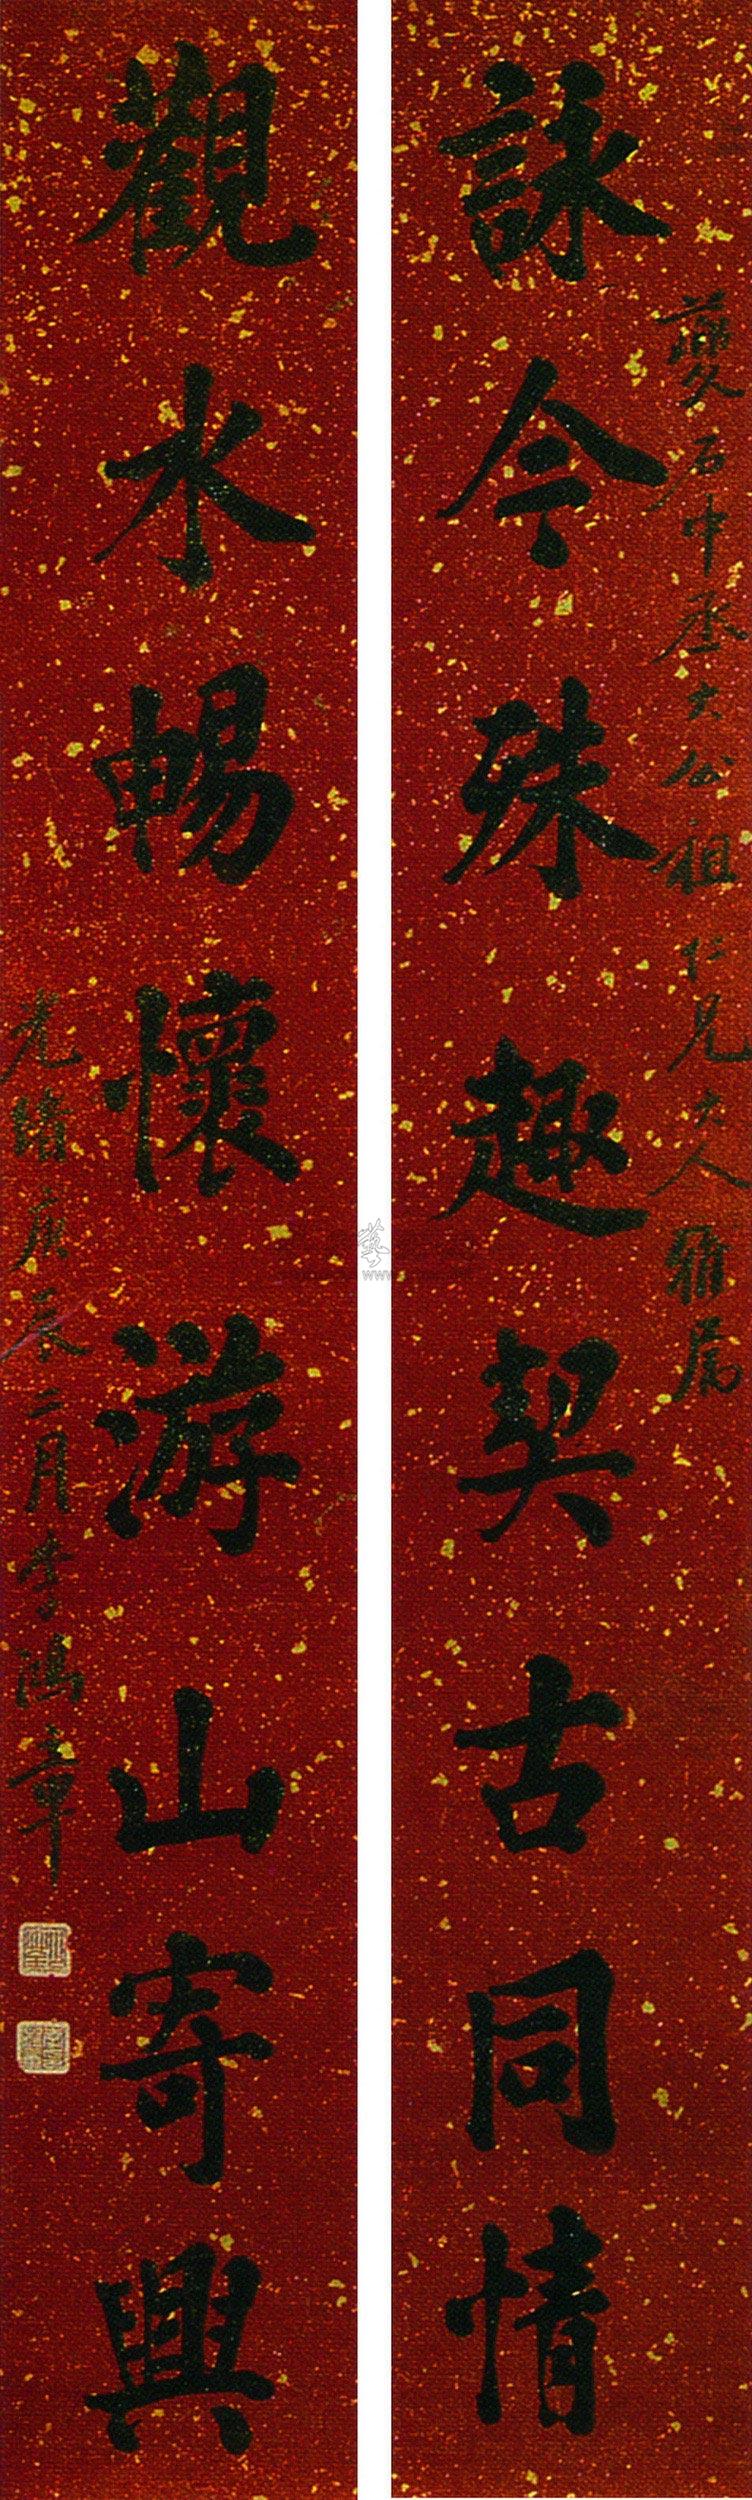 夔石中丞大公祖仁兄大人雅属
詠今殊趣契古同情
觀水暢懷游山寄興
光緒庚辰二月李鴻章
藝
www